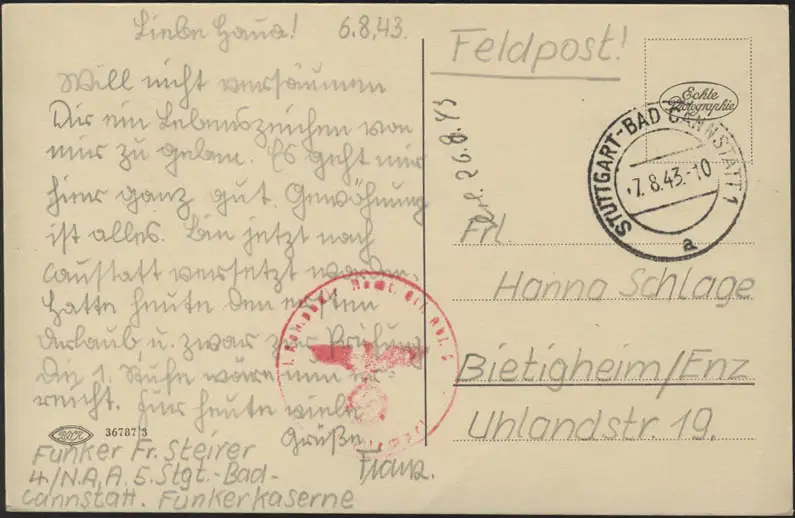 Liebe Hana! 6.8.43.
Will nicht versäumen
Dir ein Lebenszeichen von
mir zu geben. Es geht mir
hier ganz gut. Gewöhnung
ist alles. Bin jetzt nach
Canstatt versetzt worden.
Hatte heute den ersten
Urlaub u. zwar zur Prüfung
Die 1. Stufe wäre nun er-
reicht. Für heute viele
Grüße
Franz.
36787/3
Funker Fr. Steirer
4/N.A,A. 5. Stgt.-Bad-
Cannstatt. Funkerkaserne
Feldpost!
Echte
Photographie
STUTTGART-BAD CANNSTATT 1
7.8.43.-10
a
26.8.43
Frl.
Hanna Schlage
Bietigheim/Enz
Uhlandstr. 19.